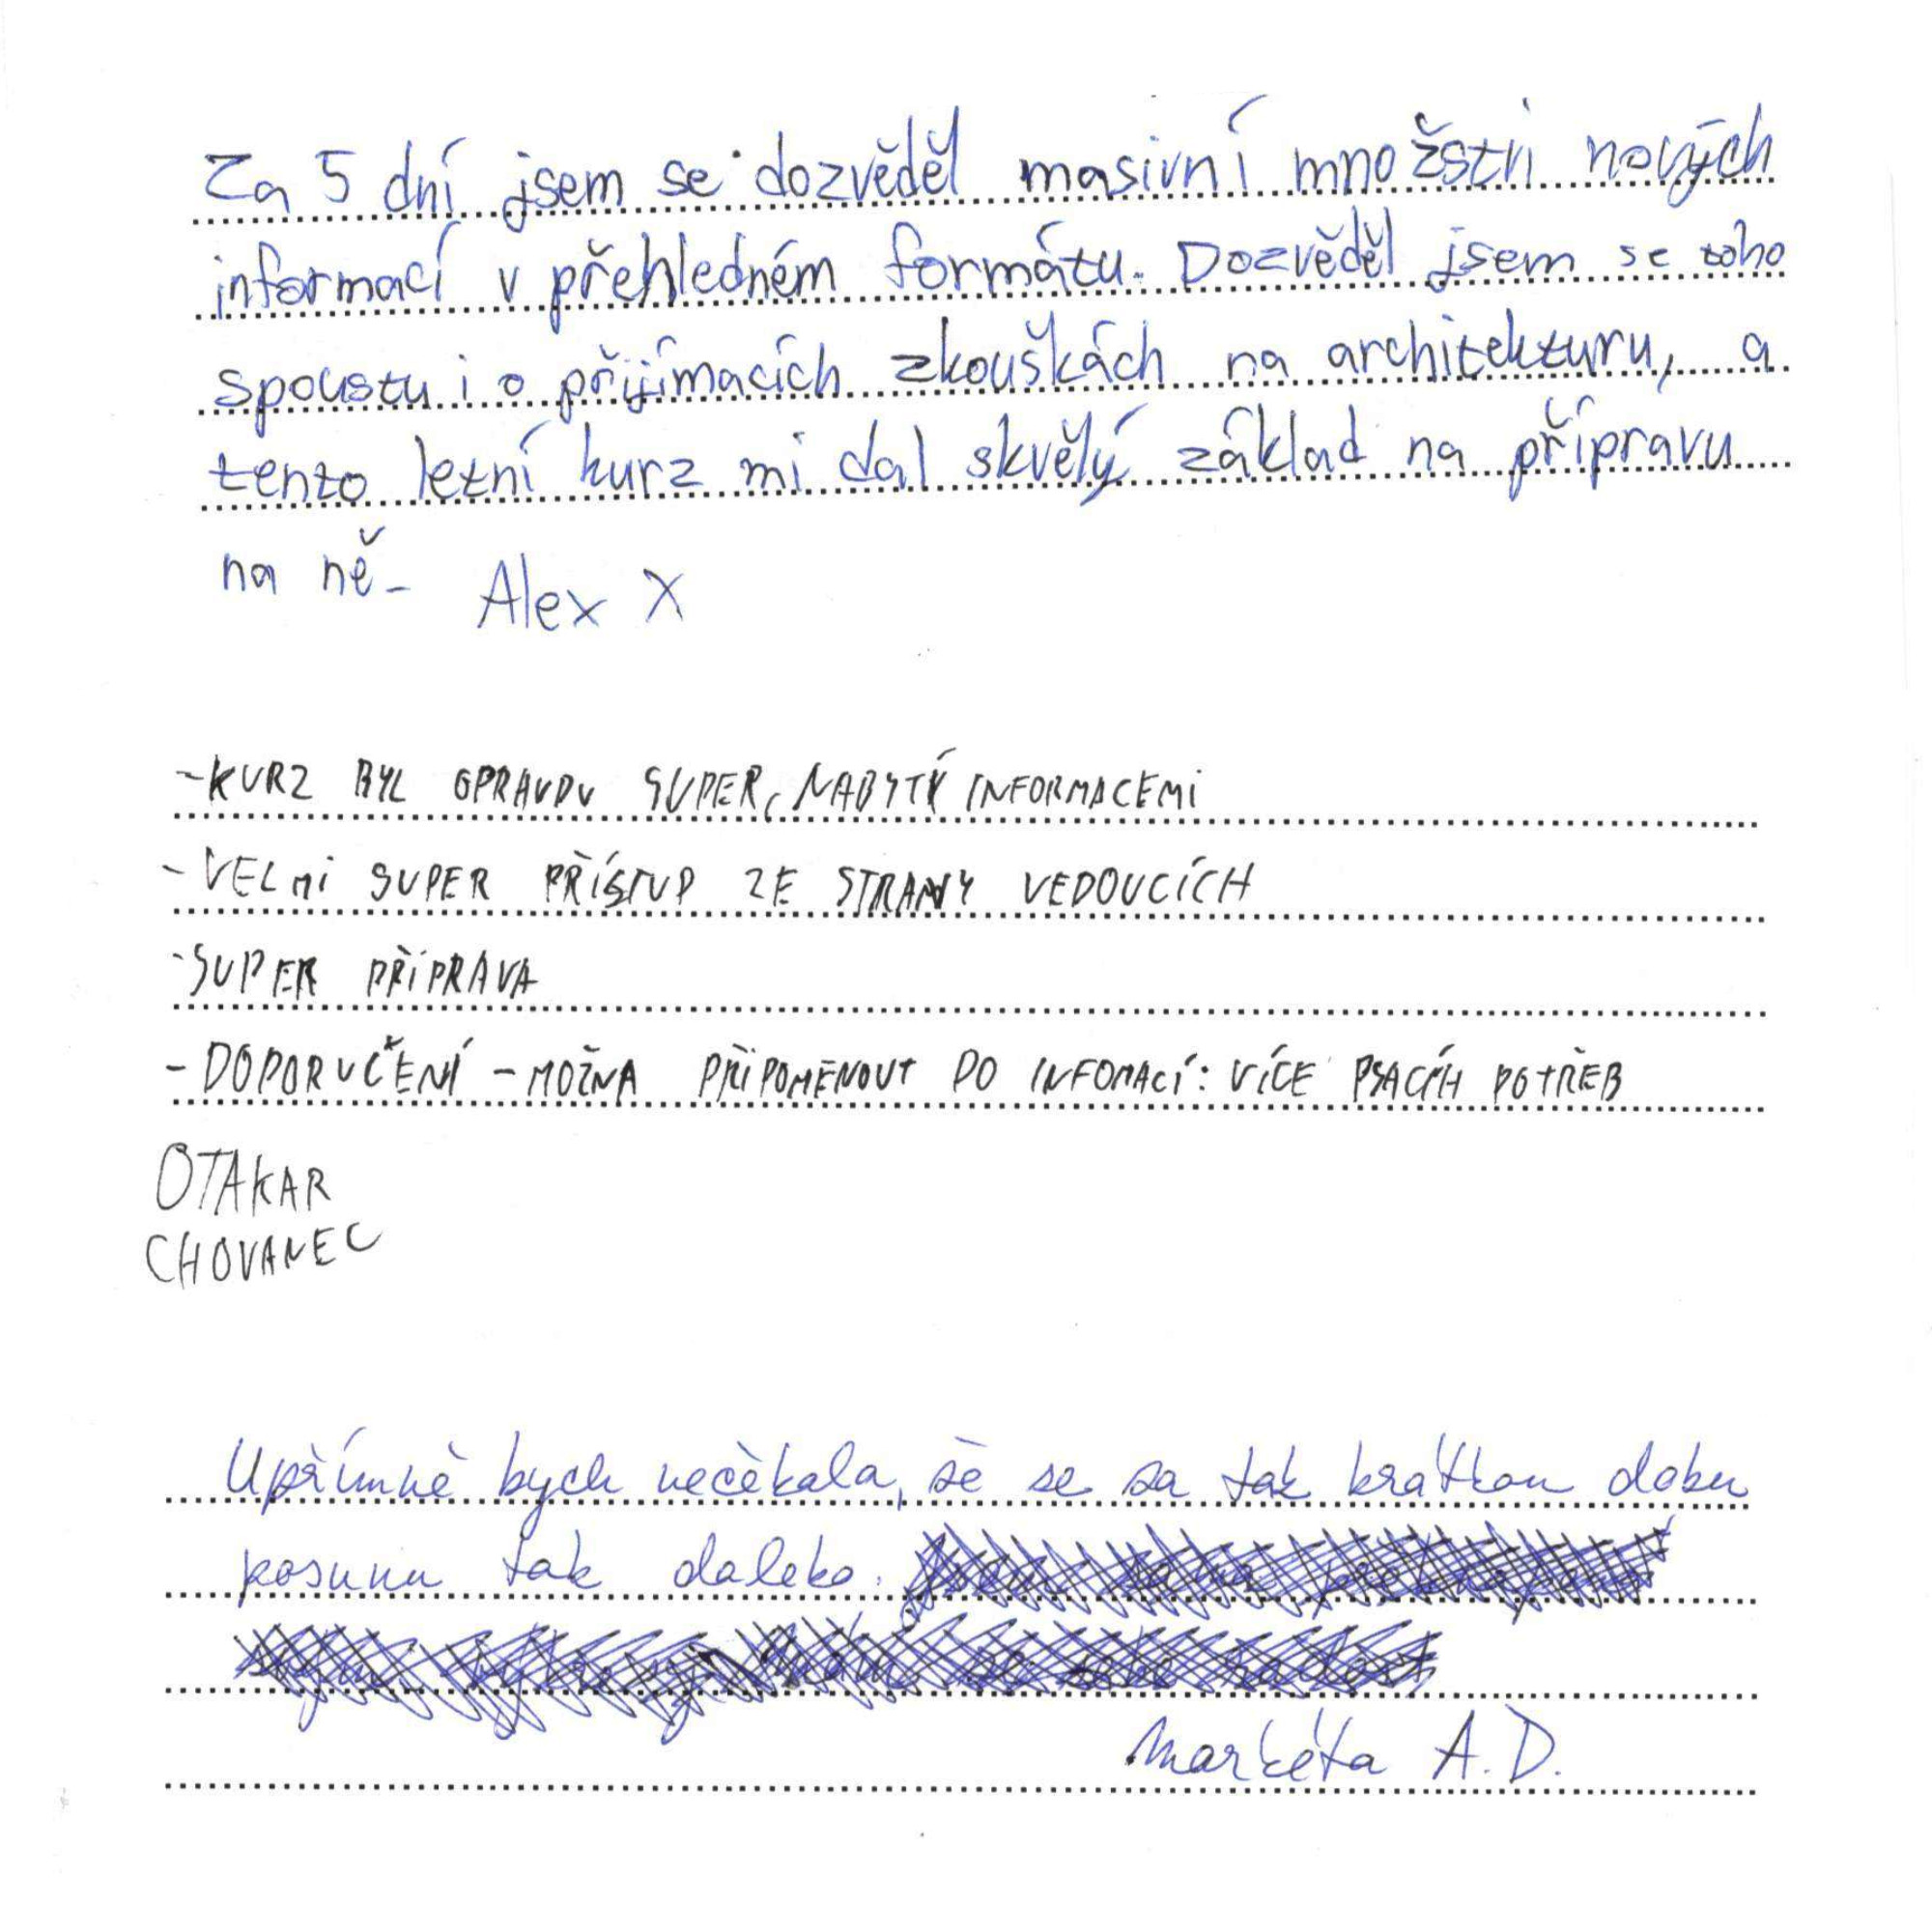 Za 5 dní jsem se dozvěděl masivní množství nových
informací v přehledném formátu. Dozvěděl jsem se toho
spoustu i o přijímacích zkouškách na architekturu, a
tento letní kurz mi dal skvělý základ na přípravu
na ně. Alex X
- KURZ BYL OPRAVDU SUPER, NABYTÝ INFORMACEMI
- VELMI SUPER PŘÍSTUP ZE STRANY VEDOUCÍCH
- SUPER PŘÍPRAVA
- DOPORUČENÍ - MOŽNA PŘIPOMENOUT DO INFOMACÍ: VÍCE PSACÍH POTŘEB
OTAKAR
CHOVANEC
Upřímně bych nečekala, že se za tak krátkou dobu
posunu tak daleko.
Markéta A.D.